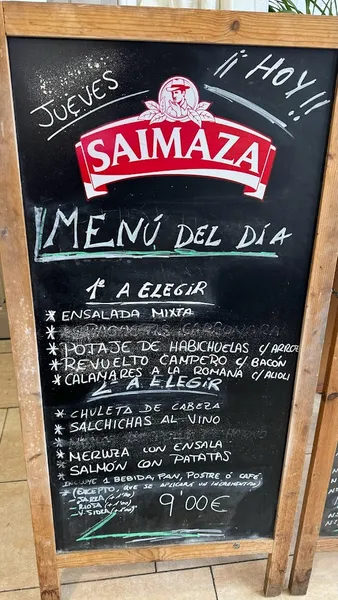 JUEVES
¡¡ HOY!!
SAIMAZA
MENÚ DEL DÍA
1º A ELEGIR
* ENSALADA MIXTA
* CARBONARA
* POTAJE DE HABICHUELAS C/ ARROZ
* REVUELTO CAMPERO C/ BACÓN
* CALAMARES A LA ROMANA C/ ALIOLI
2º A ELEGIR
* CHULETA DE CABEZA
* SALCHICHAS AL VINO
*
* MERLUZA CON ENSALA
* SALMÓN CON PATATAS
INCLUYE 1 BEBIDA, PAN, POSTRE Ó CAFÉ
* (EXCEPTO, QUE SE APLICARÁ UN INCREMENTO)
- JARRA
- RIOJA
9'00€